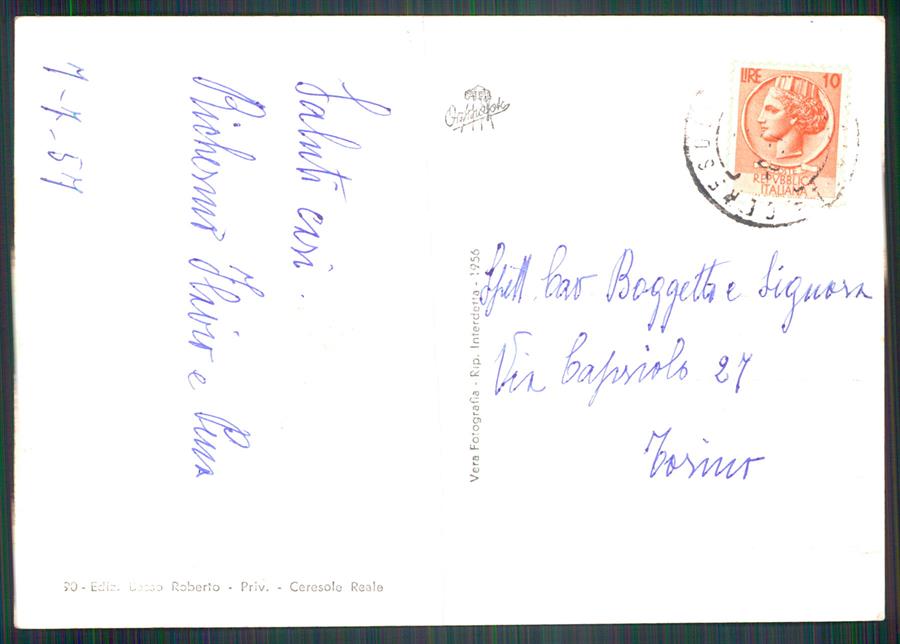 7-7.57
Saluti cari.
Richermo Flavio e Pina
90 - Ediz. Roberto - Priv. - Ceresole Reale
Vera Fotografia - Rip. Interdetta - 1956
LIRE 10
REPVBBLICA
ITALIANA
CERES
Spett. Cav Boggetto e Signora
Via Capriolo 27
Torino